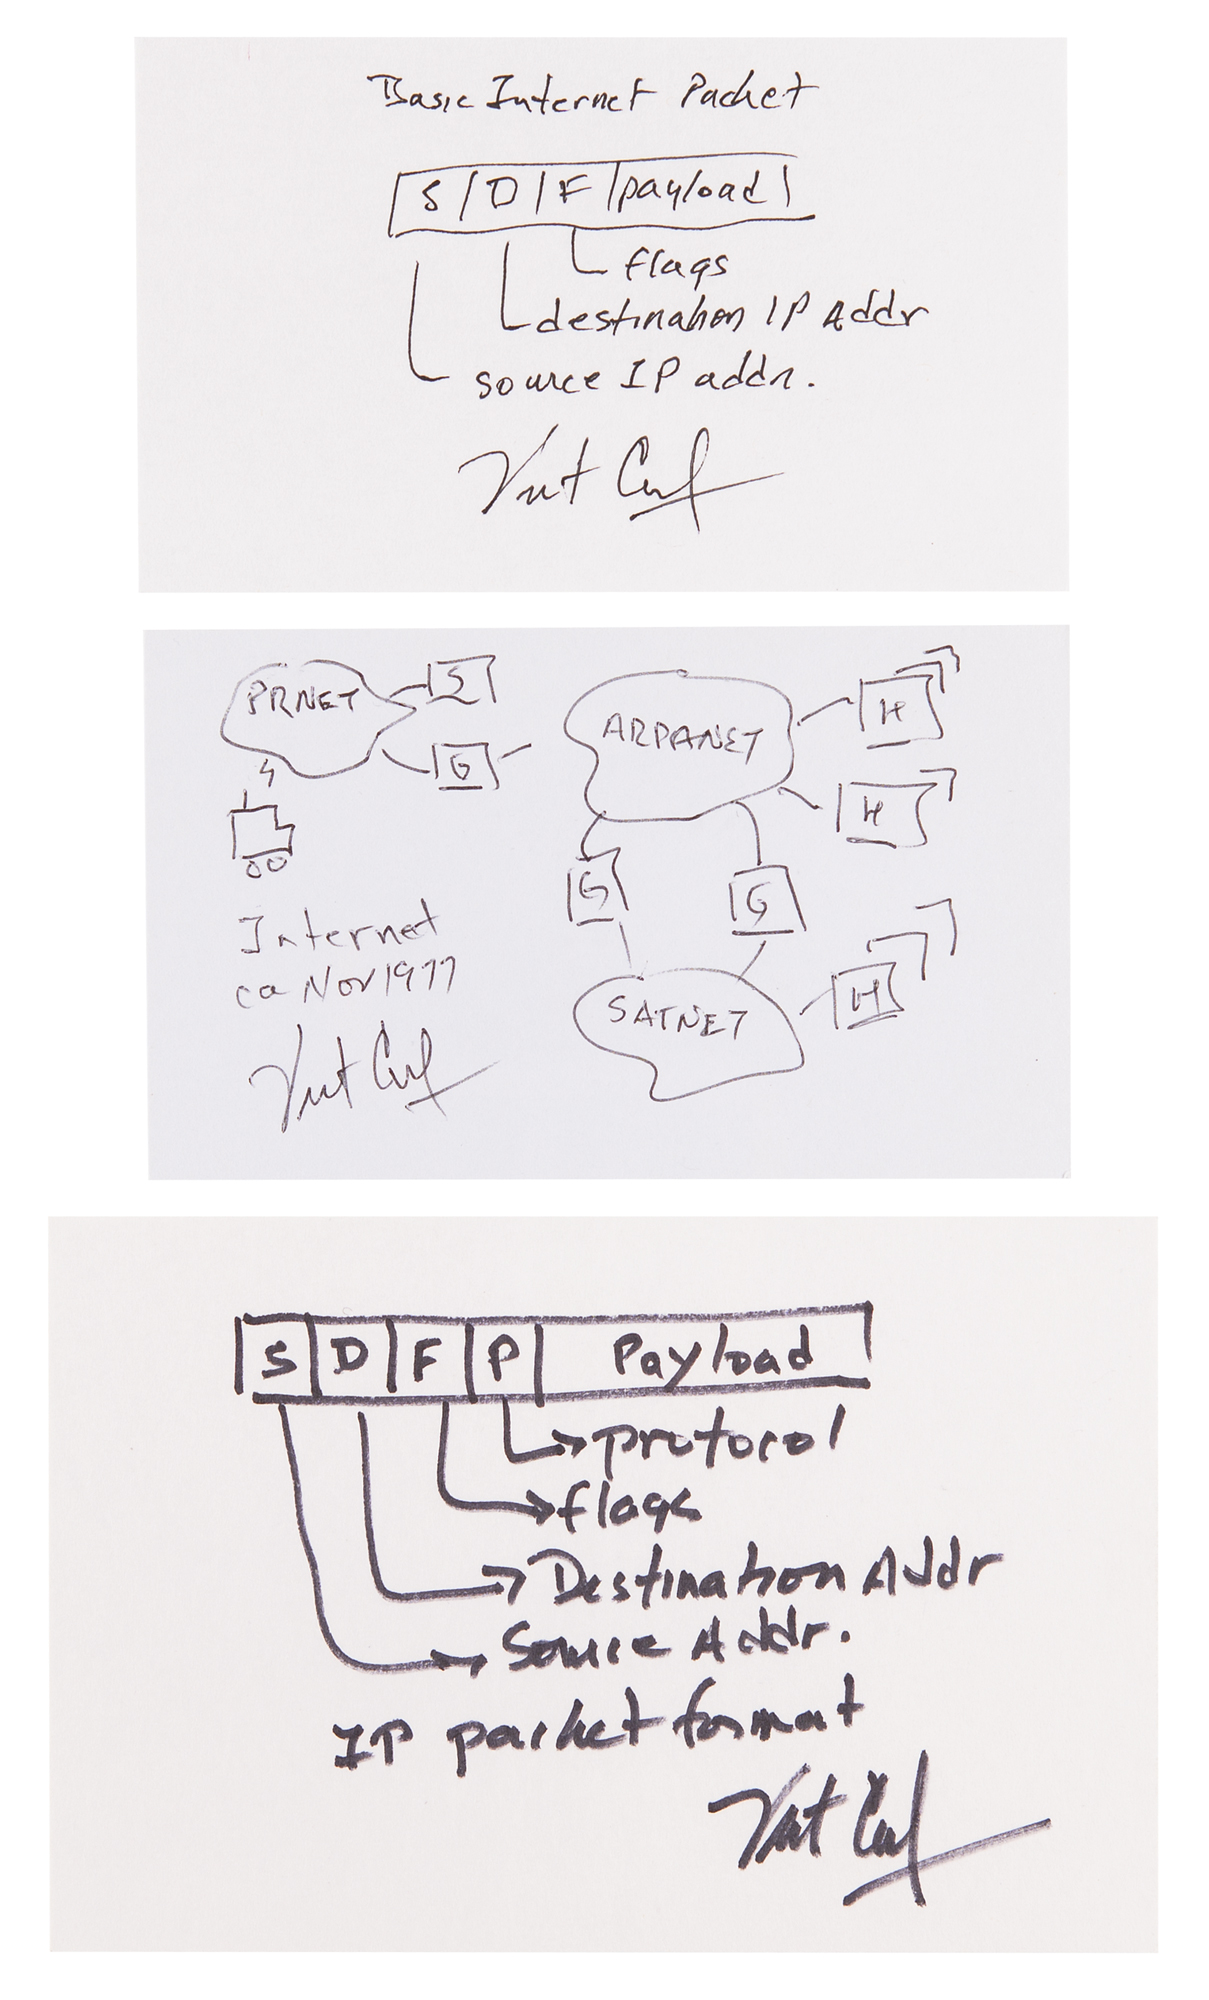 Basic Internet Packet
S D F payload
flags
destination IP Addr
source IP addr.
Vint Cerf
PRNET
S
G
ARPANET
H
H
G
G
SATNET
H
Internet
ca Nov 1977
Vint Cerf
S D F P Payload
protocol
flags
Destination Addr
Source Addr.
IP packet format
Vint Cerf